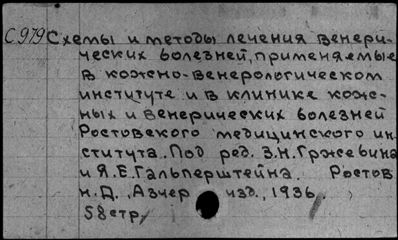 С979 Схемы и методы лечения венери-
ческих болезней, применяемые
в кожно-венерологическом
институте и в клинике кож-
ных и венерических болезней
Ростовского медицинского ин-
ститута. Под ред. З.Н. Гржебина
и Я.Е. Гальперштейна. Ростов
н.Д., Азчер изд., 1936.
58стр,